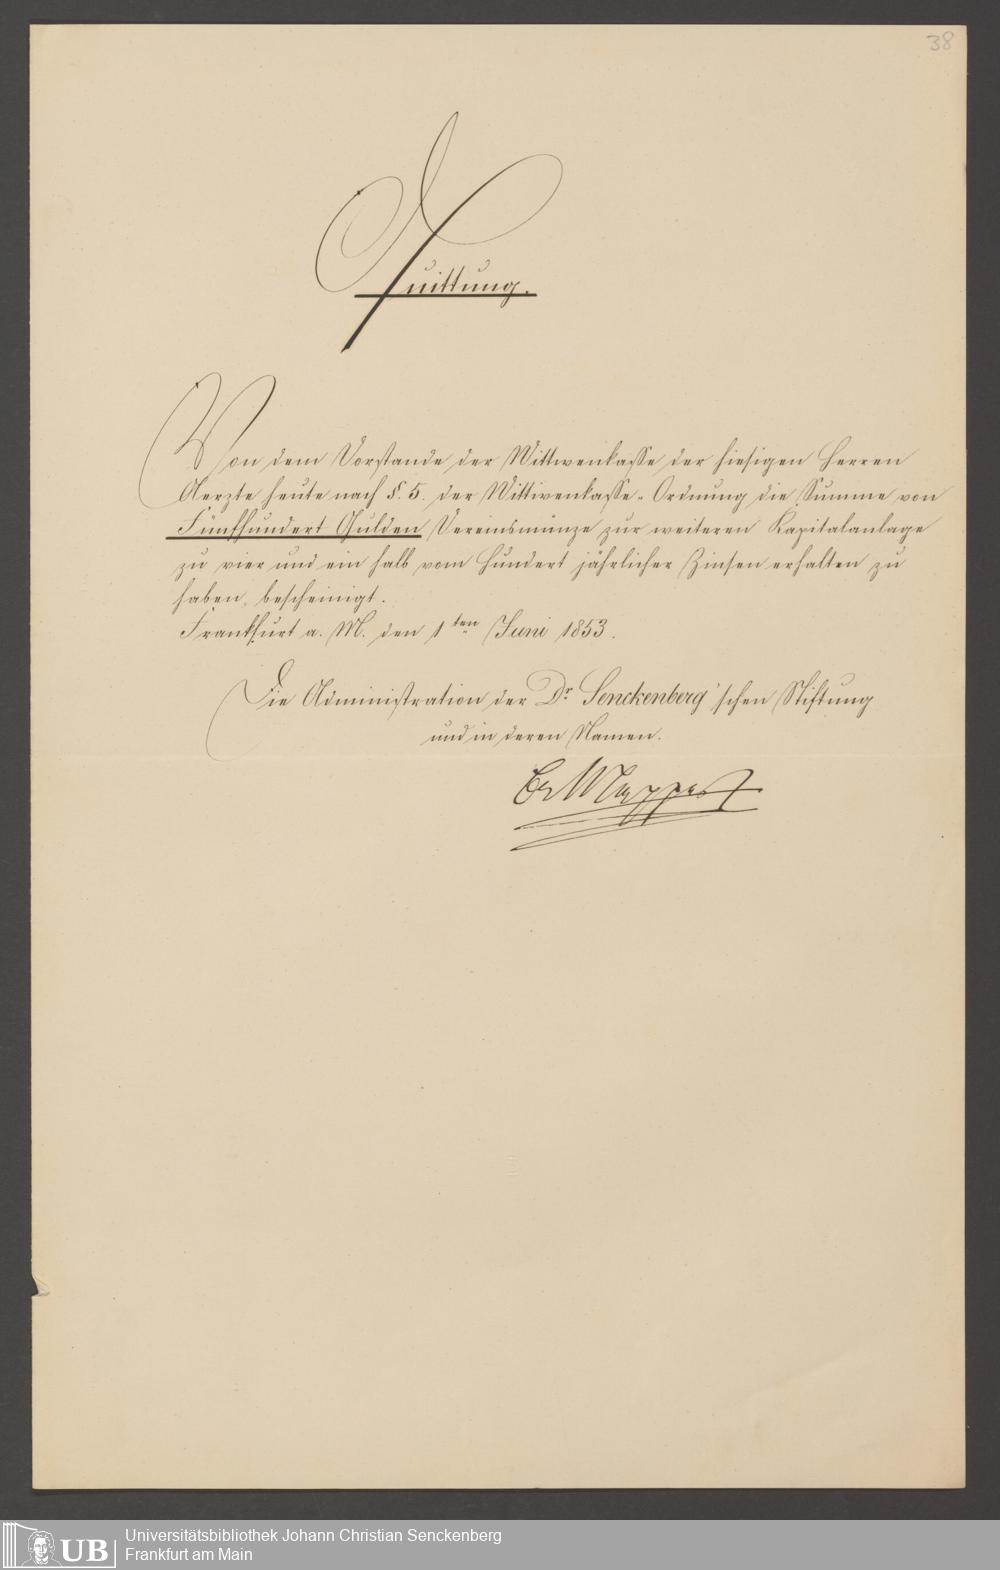 38
Quittung.
Von dem Vorstande der Wittwenkasse der hiesigen Herren
Aerzte heute nach §. 5. der Wittwenkasse-Ordnung die Summe von
Fünfhundert Gulden Vereinsmünze zur weiteren Kapitalanlage
zu vier und ein halb vom Hundert jährlicher Zinsen erhalten zu
haben, bescheinigt.
Frankfurt a. M. den 1ten Juni 1853.
Die Administration der Dr. Senckenberg'schen Stiftung
und in deren Namen.
Dr Mappes
UB
Universitätsbibliothek Johann Christian Senckenberg
Frankfurt am Main